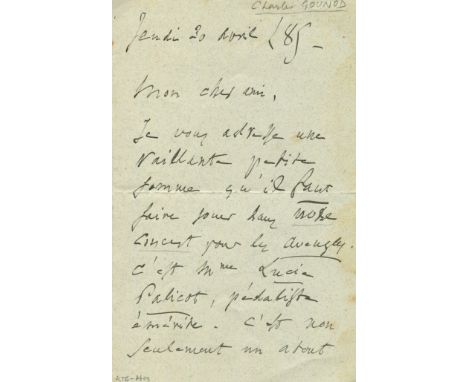 Charles GOUNOD
Jeudi 30 avril /85 _
Mon cher ami,
Je vous adresse une
vaillante petite
femme qu'il faut
faire jouer dans notre
concert pour les aveugles.
c'est Mme Lucie
Palicot, pédaliste
émérite. c'est non
seulement un atout